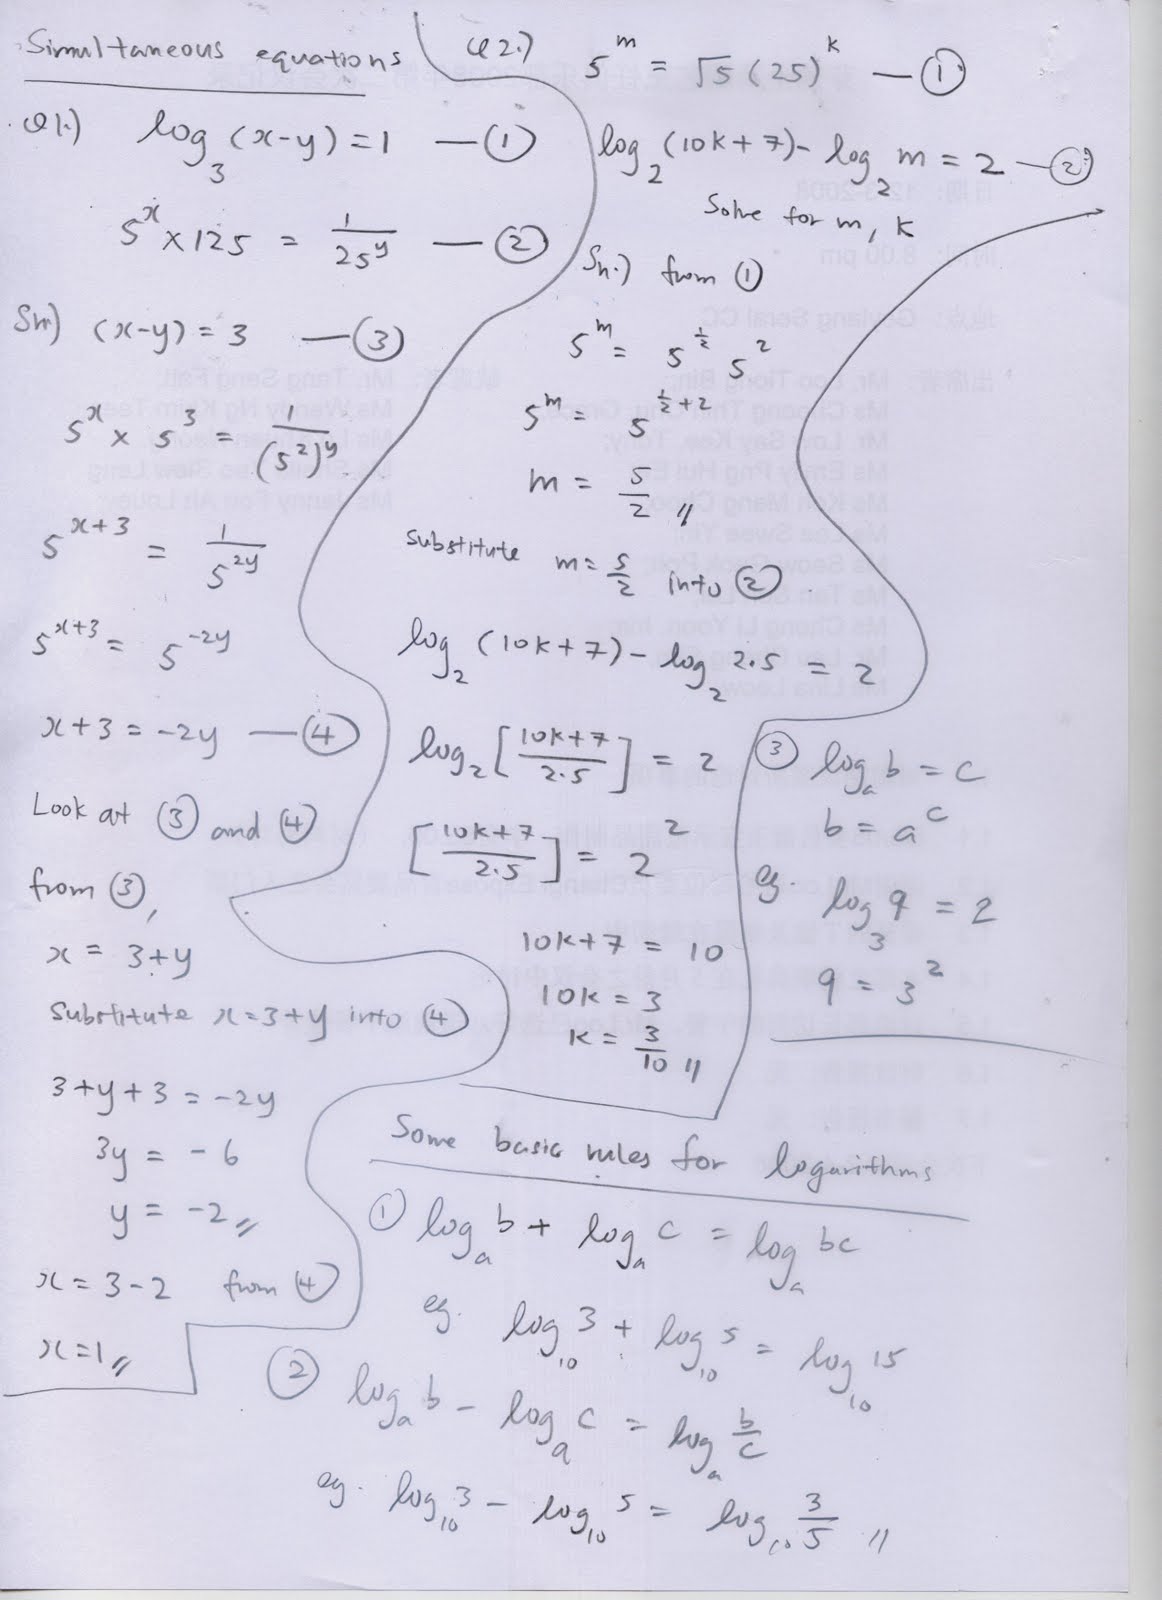 Simultaneous equations
Q1.) log₃(x-y) = 1 — ①
5^x × 125 = 1/25^y — ②
Sn) (x-y) = 3 — ③
5^x × 5^3 = 1/(5^2)^y
5^(x+3) = 1/5^(2y)
5^(x+3) = 5^(-2y)
x+3 = -2y — ④
Look at ③ and ④
from ③,
x = 3+y
Substitute x=3+y into ④
3+y+3 = -2y
3y = -6
y = -2 //
x = 3-2 from ④
x=1 //
Q2.) 5^m = √5 (25)^k — ①
log₂(10k+7) - log₂ m = 2 — ②
Solve for m, k
Sn.) from ①
5^m = 5^(1/2) 5^2
5^m = 5^(1/2+2)
m = 5/2 //
Substitute m = 5/2 into ②
log₂(10k+7) - log₂ 2.5 = 2
log₂[(10k+7)/2.5] = 2
[(10k+7)/2.5] = 2^2
10k+7 = 10
10k = 3
k = 3/10 //
Some basic rules for logarithms
① logₐ b + logₐ c = logₐ bc
eg. log₁₀ 3 + log₁₀ 5 = log₁₀ 15
② logₐ b - logₐ c = logₐ b/c
eg. log₁₀ 3 - log₁₀ 5 = log₁₀ 3/5 //
③ logₐ b = c
b = a^c
eg. log₃ 9 = 2
9 = 3^2